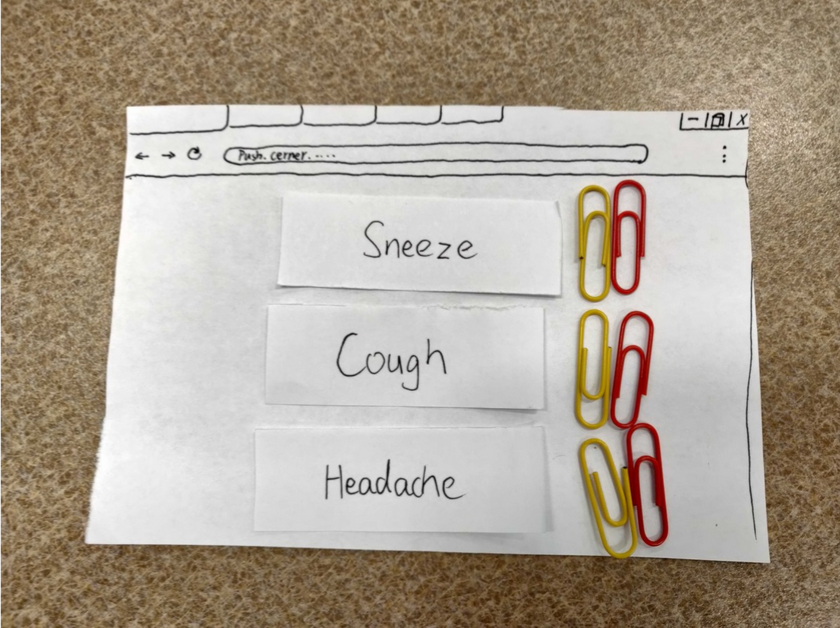 Push. cerner.....
Sneeze
Cough
Headache